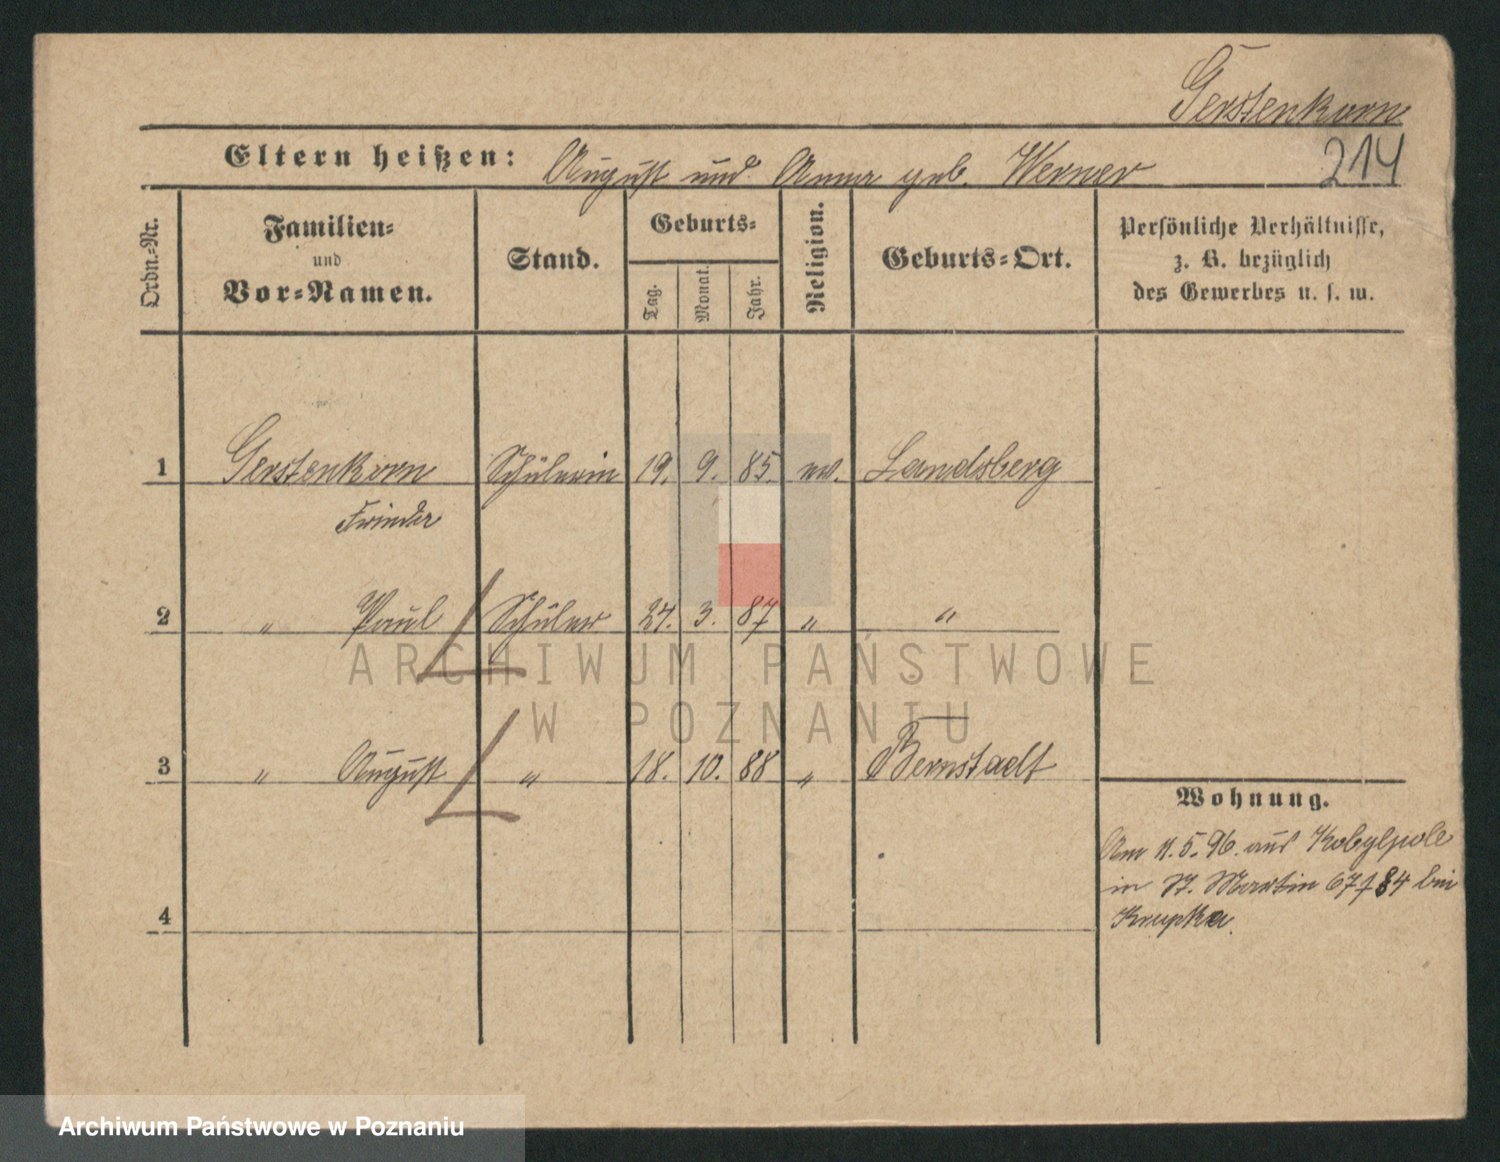 Gerstenkorn
Eltern heißen: August und Anna geb. Werner 214
Ordn.-Nr. Familien- und Vor-Namen. Stand. Geburts- Tag. Monat. Jahr. Religion. Geburts-Ort. Persönliche Verhältnisse, z. B. bezüglich des Gewerbes u. s. w.
1 Gerstenkorn Schülerin 19. 9. 85. ev. Landsberg
2 " Paul Schüler 3. 87 " "
3 " August " 18. 10. 88 " Bernstadt
Wohnung.
Am 11.5.96. aus Kobylepole
in St. Martin 67 bei
Krupka.
4
ARCHIWUM PAŃSTWOWE
W POZNANIU
Archiwum Państwowe w Poznaniu